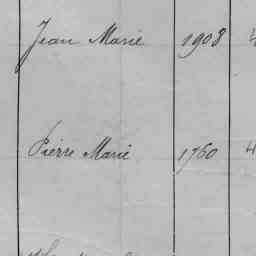 Jean Marie 1908 4
Pierre Marie 1760 4